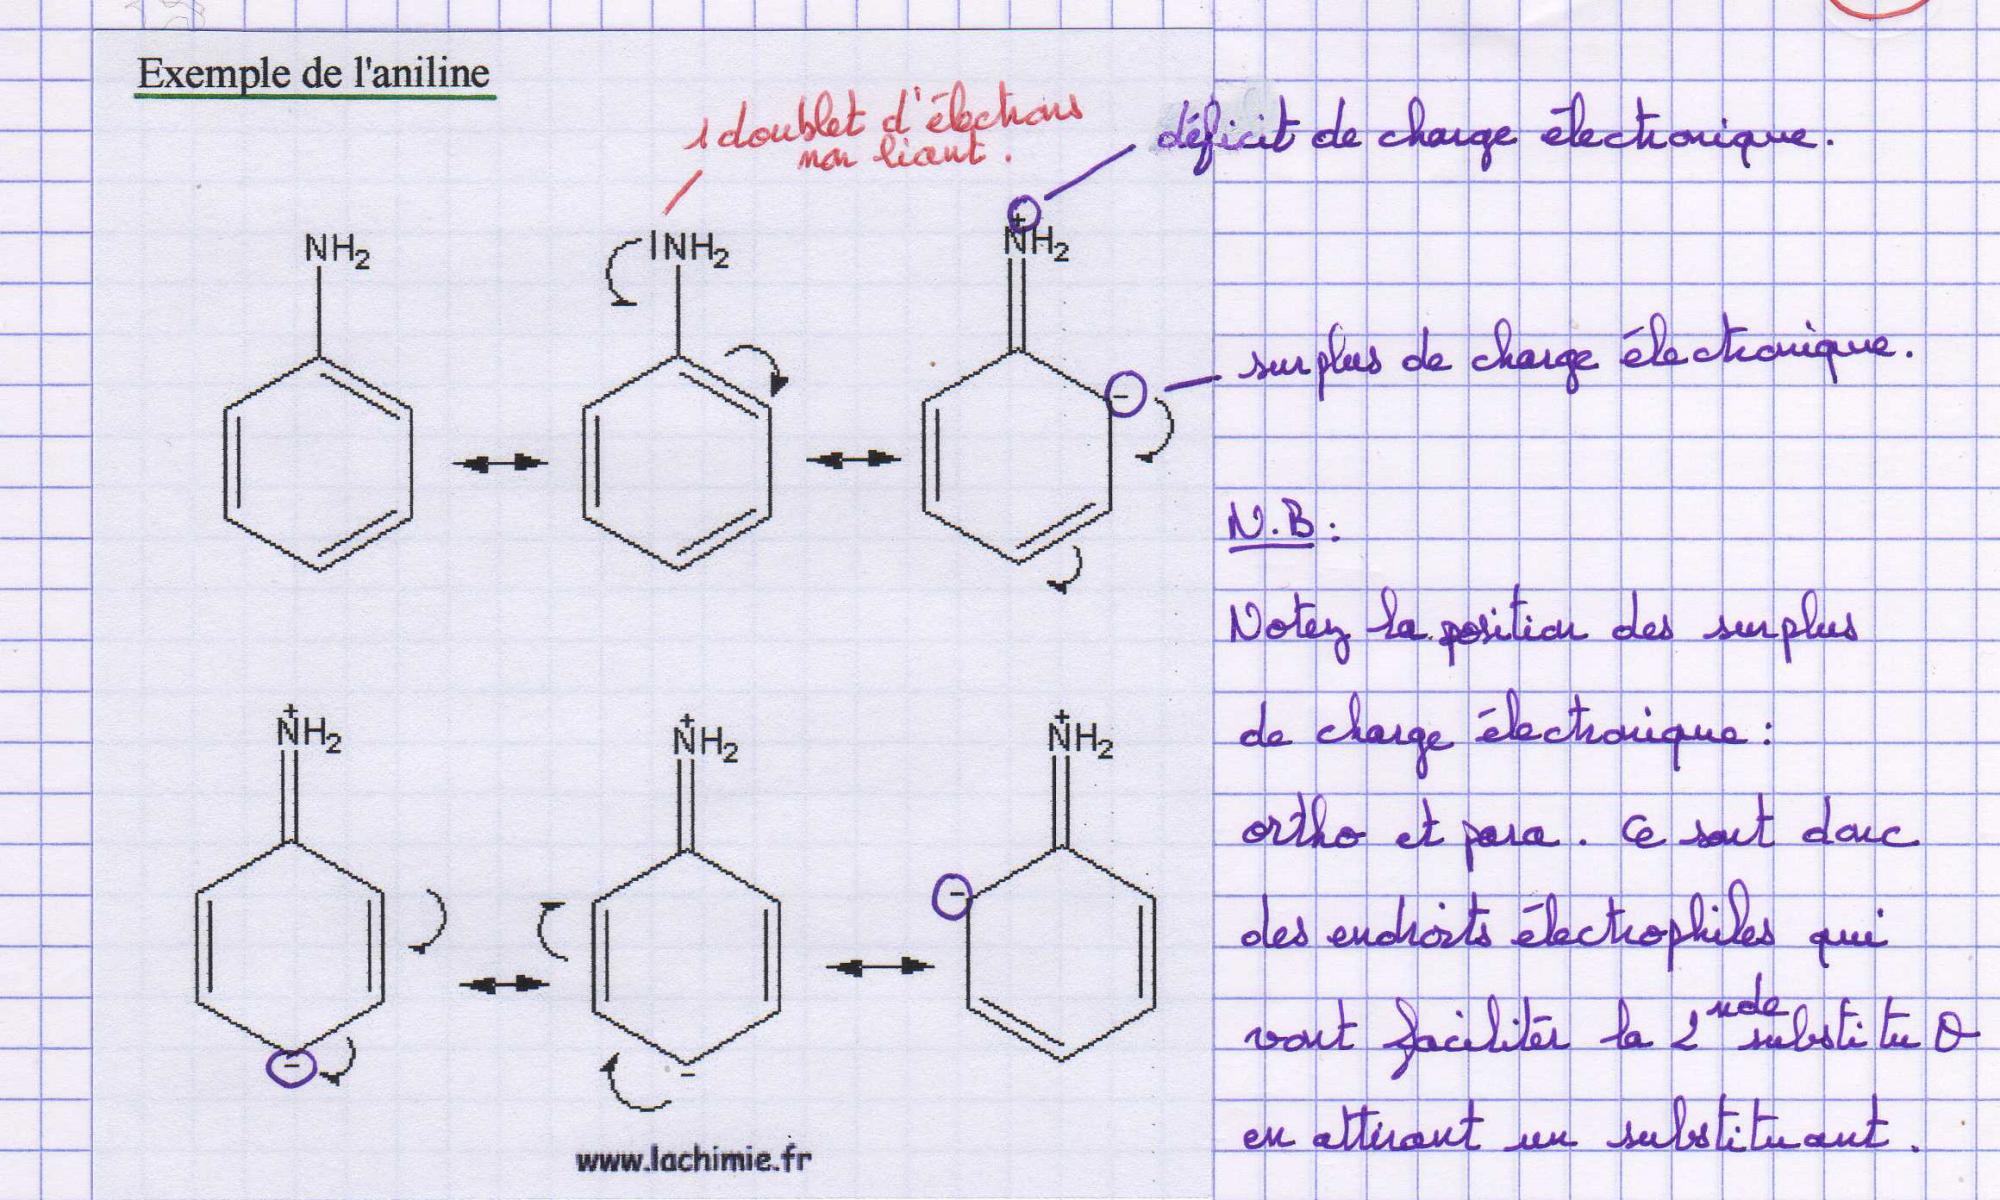 Exemple de l'aniline
1 doublet d'électrons
non liant.
déficit de charge électronique.
NH2
INH2
+
NH2
surplus de charge électronique.
-
N.B :
Notez la position des surplus
de charge électronique :
ortho et para. Ce sont donc
des endroits électrophiles qui
vont faciliter la 2nde substitu θ
en attirant un substituant.
+
NH2
+
NH2
+
NH2
-
-
-
www.lachimie.fr